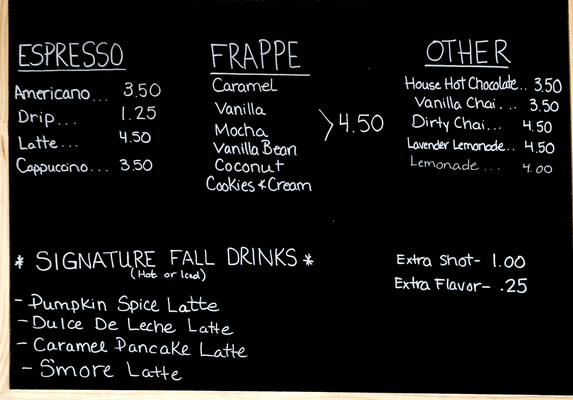 ESPRESSO
Americano... 3.50
Drip... 1.25
Latte... 4.50
Cappuccino... 3.50
FRAPPE
Caramel
Vanilla
Mocha
Vanilla Bean
Coconut
Cookies & Cream
4.50
OTHER
House Hot Chocolate.. 3.50
Vanilla Chai... 3.50
Dirty Chai... 4.50
Lavender Lemonade... 4.50
Lemonade ... 4.00
* SIGNATURE FALL DRINKS *
(Hot or Iced)
- Pumpkin Spice Latte
- Dulce De Leche Latte
- Caramel Pancake Latte
- S'more Latte
Extra Shot- 1.00
Extra Flavor- .25